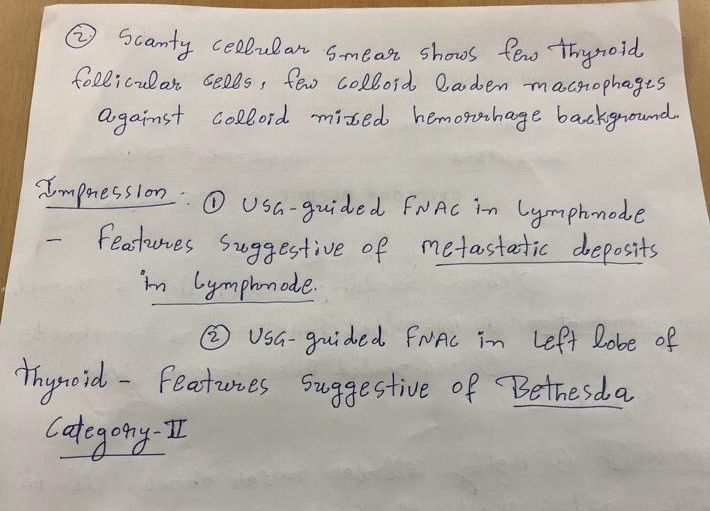 ② Scanty cellular smear shows few Thyroid
follicular cells, few colloid laden macrophages
against colloid mixed hemorrhage background.
Impression : ① USG-guided FNAC in lymphnode
– Features suggestive of metastatic deposits
in lymphnode.
② USG-guided FNAC in Left lobe of
Thyroid – Features suggestive of Bethesda
Category-II